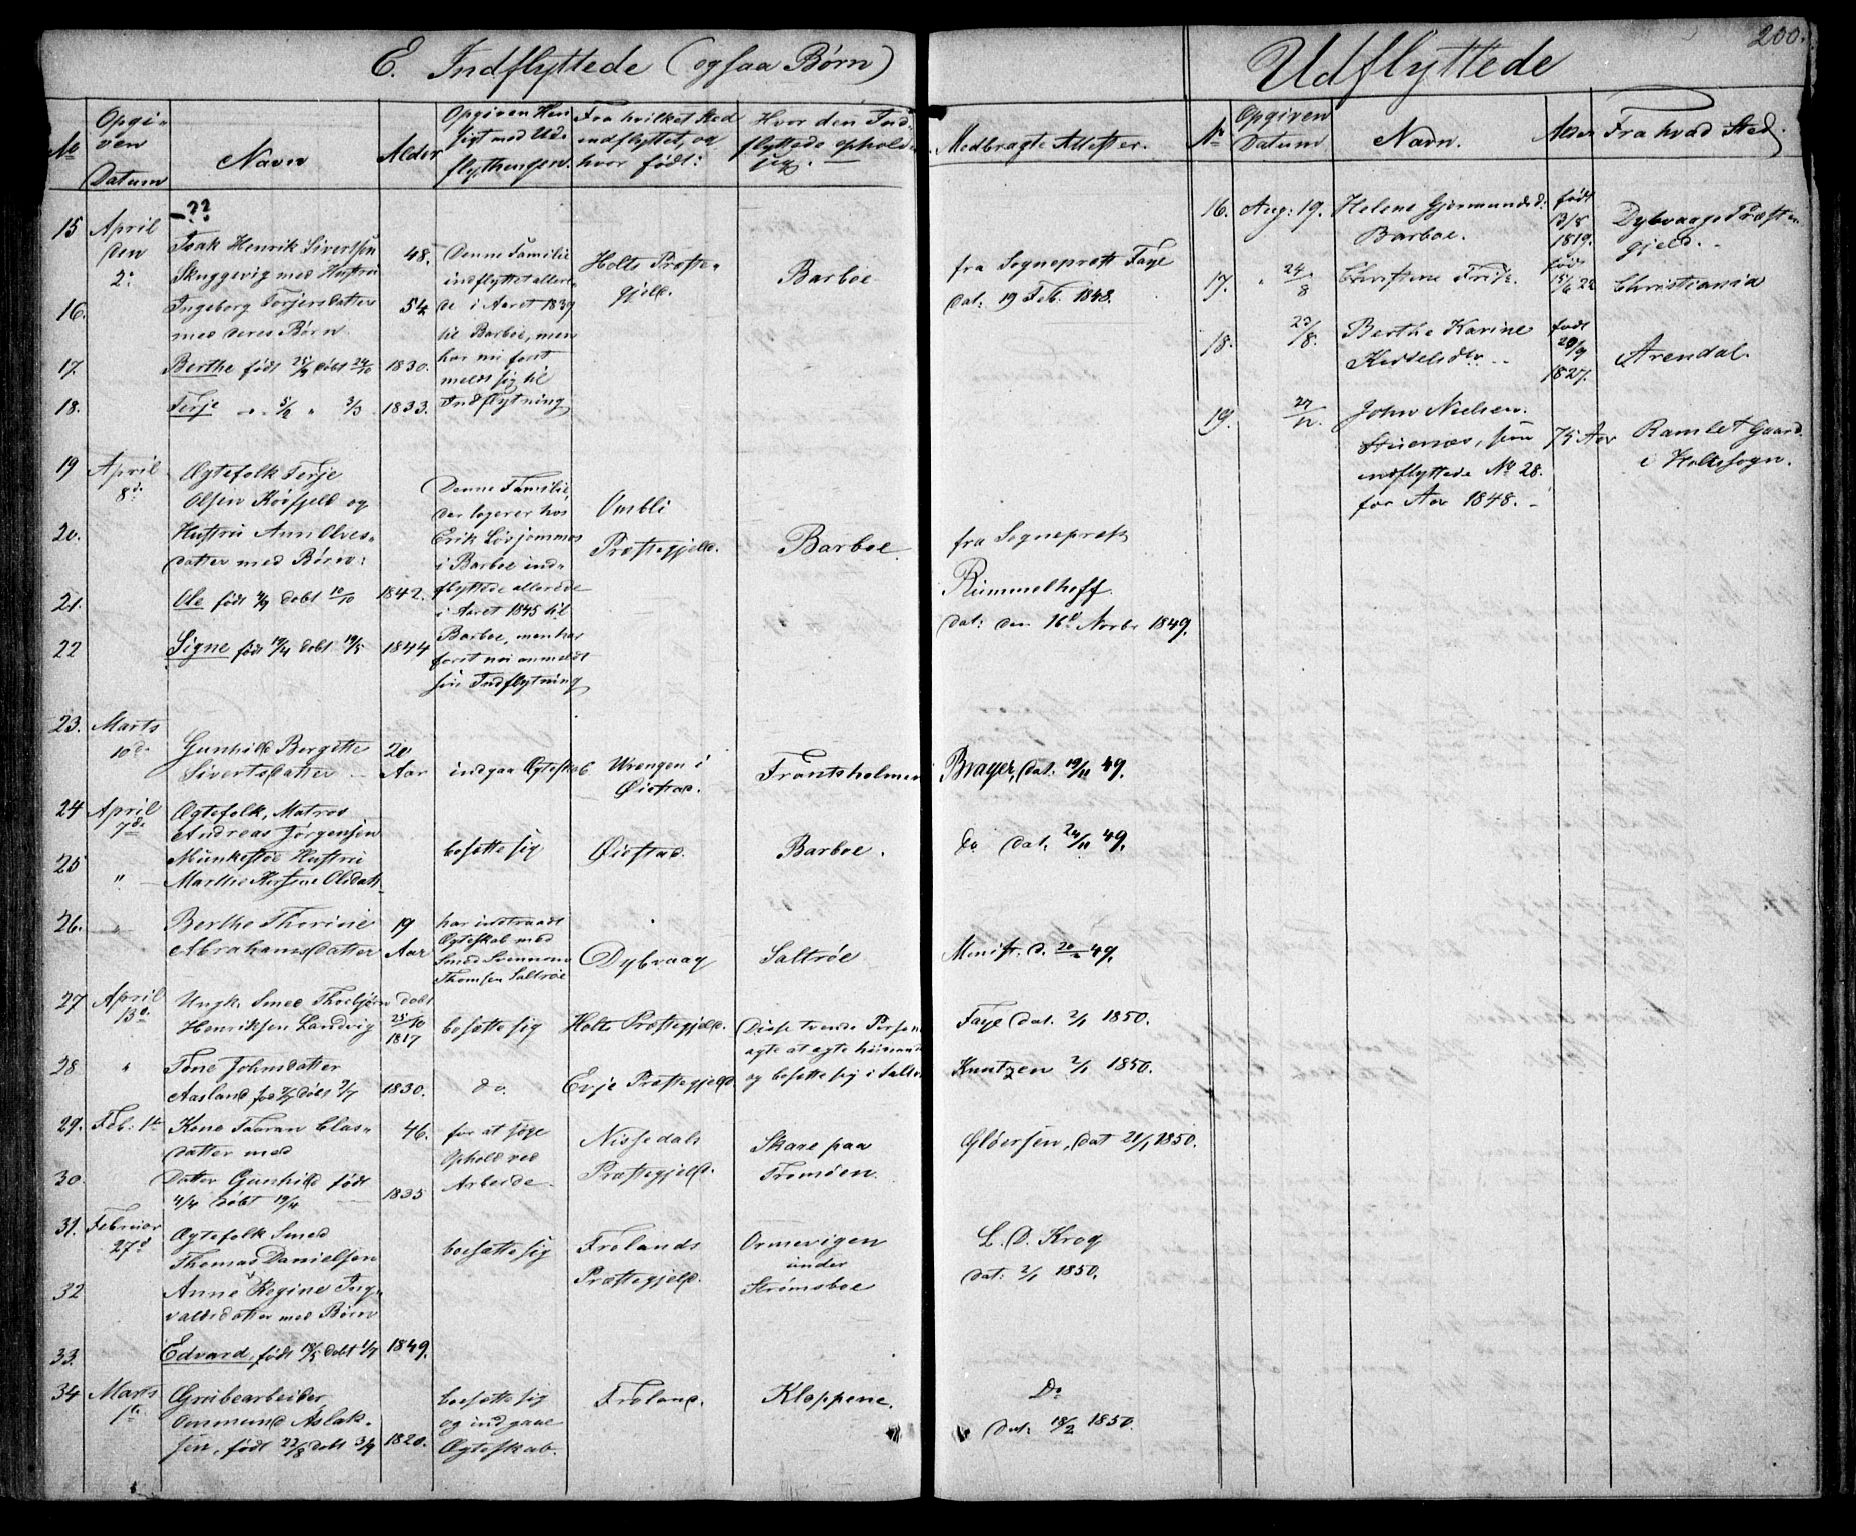 E. Indflyttede (ogsaa Børn)
Udflyttede
200.
No
Opgi-
ven
Datum
Navn
Alder
Opgiven Hen
sigt med Ud-
flytningen.
Fra hvilket Sted
indflyttet, og
hvor født:
Hvor den Ind-
flyttede ophold
sig.
Medbragte Attester.
Nr
Opgiven
Datum
Navn.
Alder
Fra hvad Sted.
15
April
den
2:
-??
Isak Henrik Sivertsen
Skuggevig med Hustru
48.
Denne Familie
indflyttet allere-
de i Aaret 1839
til Barboe, men
har nu først
meldt sig til
Indflytning
Holts Præste-
gjeld.
Barboe
fra Sogneprest Faye
dat: 19 Feb. 1848.
16.
Ingeborg Torjersdatter
med deres Børn.
54
17.
Berthe født døbt
1830.
18.
Terje 5/2 " 3/3
1833.
19
April
8d.
Ægtefolk Terje
Olsen og
Denne Familie,
der logerer hos
Erik
i Barboe ind-
flyttede allerede
i Aaret 1845 til
Barboe, men har
først nu anmeldt
sin Indflytning
Ombli
Præstegjeld.
Barboe
fra Sogneprest
Rummelhoff.
dat: den 16d Novbr 1849.
20.
Hustru Ann Olves-
datter med Børn:
21.
Ole født døbt 10/10
1842.
22
Signe født 17/4 døbt 19/5
1844
23.
Marts
10d.
Gunhild Bergitte
Sivertsdatter
20
Aar
indgaa Ægteskab
Vrengen i
Øiestad.
Frantsholmen
Brager, dat: 19/11 49.
24
April
7de
Ægtefolk, Matros
Andreas Jørgensen
bosætte sig
Øiestad.
Barboe.
do dat: 24/11 49.
25
"
Hustru
Marthe
26.
Berthe Thorine
Abrahamsdatter
19
Aar
har indtraadt
Ægteskab med
Smed
Thomsen Saltrøe
Dybvaag
Saltrøe
27
April
13d.
Ungk. Smed Thorbjørn
Henriksen Landvig
døbt
25/10
1817
bosætte sig
Holts Præstegjeld.
Disse tvende Personer
agte at ægte hinanden
og bosætte sig i Saltrøe
Faye dat. 2/1 1850.
28
"
Tone Johnsdatter
Aasland
1830.
do.
Evje Præstegjeld.
Kuntzen 2/1 1850.
29.
Feb: 1te
Kone Taaran Clas-
datter med
46.
for at søge
Ophold ved
Arbeide
Nissedals
Præstegjeld.
Skare paa
Tromøen.
Gløersen, dat 21/1 1850.
30.
Datter Gunhild født
4/4 døbt 19/4
1835
31.
Februar
27d
Ægtefolk Smed
Thomas Danielsen
bosætte sig
Frolands
Præstegjeld.
Ormevigen
under
Strømsboe
L. O. Krog
dat: 2/1 1850.
32
Anne Regine Ing-
valdsdatter med Børn
33.
Edvard, født 18/5 døbt 1/7
1849.
34
Marts
1te
Grubearbeider
Ommund Aslak-
sen, født 22/8 døbt 3/9
1820.
bosætte sig
og indgaae
Ægteskab.
Froland.
Kloppene.
Do
dat: 18/2 1850.
16.
Aug: 19.
Helene Gjermundsd:
Barboe.
født
13/8
1819.
Dybvaags Præste-
gjeld.
17.
" 24/8
Christine
født
15/6 22
Christiania
18.
23/8.
Berthe Karine
Kittelsdtr.
født
29/9
1827.
Arendal.
19.
John Nielsen
som
indflyttede No 28.
for Aar 1848.
75 Aar
Ramlet Gaard
i Holt Sogn.